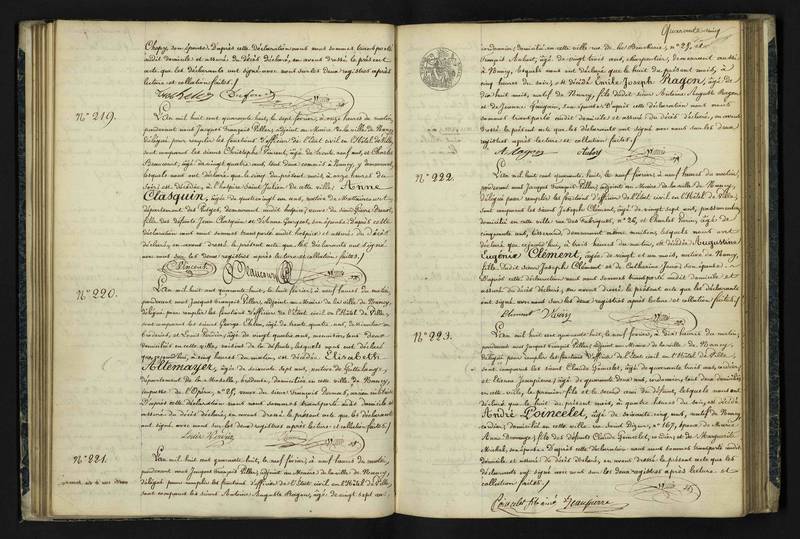 Quarante cinq
Chopy son épouse. D'après cette déclaration nous nous sommes transporté
audit domicile et assuré du décès déclaré, en avons dressé le présent
acte que les déclarants ont signé avec nous sur les deux registres après
lecture et collation faites./.
N° 219.
L'an mil huit cent quarante huit, le sept février, à onze heures du matin,
pardevant nous Jacques François Pellier, adjoint au Maire de la ville de Nancy,
délégué pour remplir les fonctions d'officier de l'État civil en l'Hôtel de Ville,
sont comparus les sieurs Christophe Vincent, âgé de trente neuf ans, et Charles
Beaucourt, âgé de vingt quatre ans, tous deux commis à Nancy, y demeurant,
lesquels nous ont déclaré que le cinq du présent mois, à onze heures du
soir, est décédée, à l'hospice Saint Julien de cette ville, Anne
Clasquin, âgée de quatre vingt un ans, native de
département des Vosges, demeurant audit hospice; veuve de
fille des défunts Jean Clasquin et son épouse. D'après cette
déclaration nous nous sommes transporté audit hospice et assuré du décès
déclaré, en avons dressé le présent acte que les déclarants ont signé
avec nous sur les deux registres après lecture et collation faites./.
CVincent Beaucourt
N° 220.
L'an mil huit cent quarante huit, le huit février, à neuf heures du matin,
pardevant nous Jacques François Pellier, adjoint au Maire de la ville de Nancy,
délégué pour remplir les fonctions d'officier de l'État civil en l'Hôtel de Ville,
sont comparus les sieurs George âgé de trente quatre ans,
et Louis âgé de vingt quatre ans, tous deux
domiciliés en cette ville, voisins de la défunte, lesquels nous ont déclaré
que aujourd'hui, à cinq heures du matin, est décédée Elisabeth
Allemayer, âgée de soixante sept ans, native de
département de la Moselle, domiciliée en cette ville de Nancy,
impasse de l'Opéra, n° 25, veuve du sieur François
D'après cette déclaration nous nous sommes transporté audit domicile et
assuré du décès déclaré, en avons dressé le présent acte que les déclarants
ont signé avec nous sur les deux registres après lecture et collation faites./.
N° 221.
L'an mil huit cent quarante huit, le neuf février, à neuf heures du matin,
pardevant nous Jacques François Pellier, adjoint au Maire de la ville de Nancy,
délégué pour remplir les fonctions d'officier de l'État civil en l'Hôtel de Ville,
sont comparus les sieurs Antoine Auguste Ragon, âgé de vingt sept ans,
cordonnier, domicilié en cette ville rue de la Boucherie, n° 29, et
François Aubry, âgé de vingt trois ans, charpentier, demeurant aussi
à Nancy, lesquels nous ont déclaré que le huit du présent mois, à
cinq heures du soir, est décédé Emile Joseph Ragon, âgé de
dix huit mois, natif de Nancy, fils dudit sieur Antoine Auguste Ragon
et de Jeanne son épouse. D'après cette déclaration nous nous
sommes transporté audit domicile et assuré du décès déclaré, en avons
dressé le présent acte que les déclarants ont signé avec nous sur les deux
registres après lecture et collation faites./.
A. Ragon Aubry
N° 222.
L'an mil huit cent quarante huit, le neuf février, à neuf heures du matin,
pardevant nous Jacques François Pellier, adjoint au Maire de la ville de Nancy,
délégué pour remplir les fonctions d'officier de l'État civil en l'Hôtel de Ville,
sont comparus les sieurs Joseph Clément, âgé de vingt sept ans,
domicilié en cette ville rue des Fabriques, n° 26, et Charles âgé de
cinquante ans, tisserand, demeurant même maison, lesquels nous ont
déclaré que aujourd'hui, à trois heures du matin, est décédée Augustine
Eugénie Clément, âgée de vingt et un mois, native de Nancy,
fille dudit sieur Joseph Clément et de Catherine son épouse.
D'après cette déclaration nous nous sommes transporté audit domicile et
assuré du décès déclaré, en avons dressé le présent acte que les déclarants
ont signé avec nous sur les deux registres après lecture et collation faites./.
N° 223.
L'an mil huit cent quarante huit, le neuf février, à dix heures du matin,
pardevant nous Jacques François Pellier, adjoint au Maire de la ville de Nancy,
délégué pour remplir les fonctions d'officier de l'État civil en l'Hôtel de Ville,
sont comparus les sieurs Claude Poincelet, âgé de quarante huit ans, cordier,
et Etienne Jeanpierre, âgé de quarante deux ans, cordonnier, tous deux domiciliés
en cette ville, le premier fils et le second du défunt, lesquels nous ont
déclaré que le huit du présent mois, à quatre heures du soir, est décédé
André Poincelet, âgé de soixante cinq ans, natif de Nancy,
cordier, domicilié en cette ville n° 167, époux de Marie
Anne fils des défunts Claude Poincelet, cordier, et de Marguerite
Michel, son épouse. D'après cette déclaration nous nous sommes transporté audit
domicile et assuré du décès déclaré, en avons dressé le présent acte que les
déclarants ont signé avec nous sur les deux registres après lecture et
collation faites./.
Poincelet fils ainé Jeanpierre